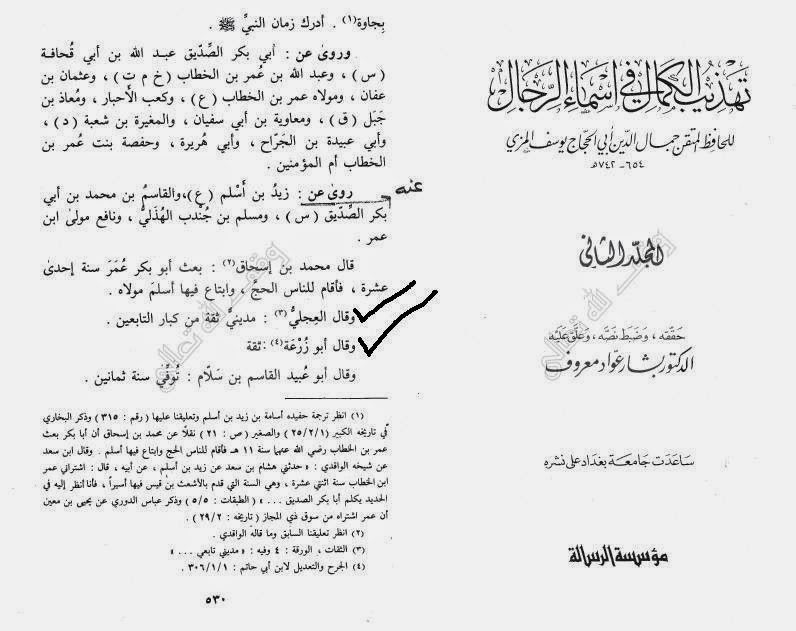 تهذيب الكمال في أسماء الرجال
للحافظ المتقن جمال الدين أبي الحجاج يوسف المزي
٦٥٤ - ٧٤٢ هـ
المجلد الثاني
حققه ، وضبط نصه ، وعلق عليه
الدكتور بشار عواد معروف
ساعدت جامعة بغداد على نشره
مؤسسة الرسالة
بِجاوة(١) . أدرك زمان النبيِّ ﷺ .
وروىٰ عن : أبي بكر الصِّدّيق عبد الله بن أبي قُحافة
( س ) ، وعبد الله بن عُمر بن الخطاب ( خ م ت ) ، وعثمان بن
عفان ، ومولاه عمر بن الخطاب ( ع ) ، وكعب الأحبار ، ومُعاذ بن
جَبَل ( ق ) ، ومعاوية بن أبي سفيان ، والمغيرة بن شعبة ( د ) ،
وأبي عبيدة بن الجَرّاح ، وأبي هُريرة ، وحفصة بنت عُمر بن
الخطاب أم المؤمنين .
عنه
روىٰ عن : زيدُ بن أَسْلم ( ع )،والقاسمُ بن محمد بن أبي
بكر الصِّدِّيق ( س ) ، ومسلم بن جُنْدب الهُذَليُّ ، ونافع مولىٰ ابن
عمر .
قال محمد بن إسحاق(٢) : بعث أبو بكر عُمَرَ سنة إحدىٰ
عشرة ، فأقام للناس الحجَّ ، وابتاع فيها أسلمَ مولاه .
وقال العِجليُّ(٣) : مدينيٌّ ثقة من كبار التابعين .
وقال أبو زُرْعَة(٤) :ثقة
وقال أبو عُبيد القاسم بن سَلّام : تُوُفِّيَ سنة ثمانين .
(١) انظر ترجمة حفيده أسامة بن زيد بن أسلم وتعليقنا عليها ( رقم : ٣١٥ ) وذكر البخاري
في تاريخه الكبير ( ٢٥/٢/١ ) والصغير ( ص : ٢١ ) نقلاً عن محمد بن إسحاق أن أبا بكر بعث
عمر بن الخطاب رضي الله عنهما سنة ١١ هـ فأقام للناس الحج وابتاع فيها أسلم . وقال ابن سعد
عن شيخه الواقدي : « حدثني هشام بن سعد عن زيد بن أسلم ، عن أبيه ، قال : اشتراني عمر
ابن الخطاب سنة اثنتي عشرة ، وهي السنة التي قدم بالأشعث بن قيس فيها أسيراً ، فأنا أنظر إليه في
الحديد يكلم أبا بكر الصديق ... » ( الطبقات : ٥/٥ ) وذكر عباس الدوري عن يحيى بن معين
أن عمر اشتراه من سوق ذي المجاز ( تاريخه : ٢٩/٢ ) .
(٢) انظر تعليقنا السابق وما قاله الواقدي .
(٣) الثقات ، الورقة : ٤ وفيه : « مديني تابعي ... »
(٤) الجرح والتعديل لابن أبي حاتم : ٣٠٦/١/١ .
٥٣٠
وقف لله تعالى
وقف لله تعالى